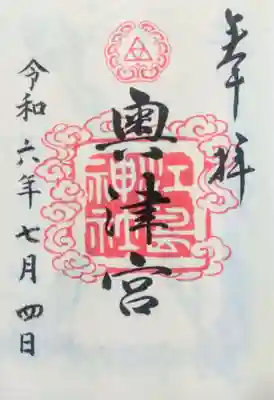 奉拝
奥津宮
江島神社
令和六年七月四日